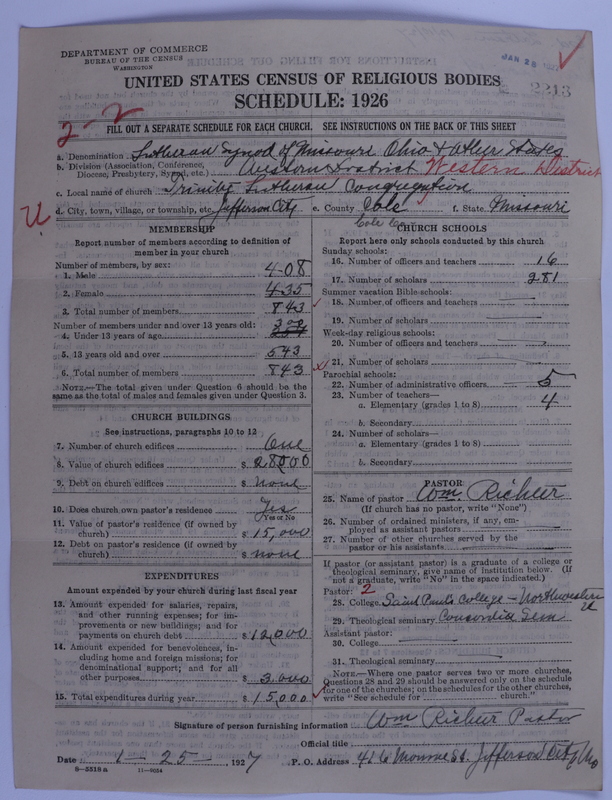 DEPARTMENT OF COMMERCE
BUREAU OF THE CENSUS
WASHINGTON
JAN 28 1927
2213
UNITED STATES CENSUS OF RELIGIOUS BODIES
SCHEDULE: 1926
2-2
FILL OUT A SEPARATE SCHEDULE FOR EACH CHURCH. SEE INSTRUCTIONS ON THE BACK OF THIS SHEET
a. Denomination Lutheran Synod of Missouri Ohio & other States
b. Division (Association, Conference, Diocese, Presbytery, Synod, etc.) Western District Western District
c. Local name of church Trinity Lutheran Congregation
d. City, town, village, or township, etc. Jefferson City e. County Cole f. State Missouri
Cole Co
MEMBERSHIP
Report number of members according to definition of member in your church
Number of members, by sex:
1. Male 408
2. Female 435
3. Total number of members 843
Number of members under and over 13 years old:
4. Under 13 years of age 300
5. 13 years old and over 543
6. Total number of members 843
NOTE.—The total given under Question 6 should be the same as the total of males and females given under Question 3.
CHURCH BUILDINGS
See instructions, paragraphs 10 to 12
7. Number of church edifices One
8. Value of church edifices $ 28000
9. Debt on church edifices $ None
10. Does church own pastor's residence Yes
Yes or No
11. Value of pastor's residence (if owned by church) $ 15,000
12. Debt on pastor's residence (if owned by church) $ none
EXPENDITURES
Amount expended by your church during last fiscal year
13. Amount expended for salaries, repairs, and other running expenses; for improvements or new buildings; and for payments on church debt $ 12,000
14. Amount expended for benevolences, including home and foreign missions; for denominational support; and for all other purposes $ 3,000
15. Total expenditures during year $ 15,000
CHURCH SCHOOLS
Report here only schools conducted by this church
Sunday schools:
16. Number of officers and teachers 16
17. Number of scholars 281
Summer vacation Bible schools:
18. Number of officers and teachers
19. Number of scholars
Week-day religious schools:
20. Number of officers and teachers
21. Number of scholars
Parochial schools:
22. Number of administrative officers 5
23. Number of teachers—
a. Elementary (grades 1 to 8) 4
b. Secondary
24. Number of scholars—
a. Elementary (grades 1 to 8)
b. Secondary
PASTOR
25. Name of pastor Wm. Richter
(If church has no pastor, write "None")
26. Number of ordained ministers, if any, employed as assistant pastors
27. Number of other churches served by the pastor or his assistants
If pastor (or assistant pastor) is a graduate of a college or theological seminary, give name of institution below. (If not a graduate, write "No" in the space indicated.)
Pastor: 2
28. College Saint Paul's College - Northwestern U
29. Theological seminary Concordia Sem
Assistant pastor:
30. College
31. Theological seminary
NOTE.—Where one pastor serves two or more churches, Questions 28 and 29 should be answered only on the schedule for one of the churches; on the schedules for the other churches, write "See schedule for church."
Signature of person furnishing information Wm Richter Pastor
Official title
Date 1-25-, 1927 P. O. Address 416 Monroe St. Jefferson City Mo
8-5518a 11-9054